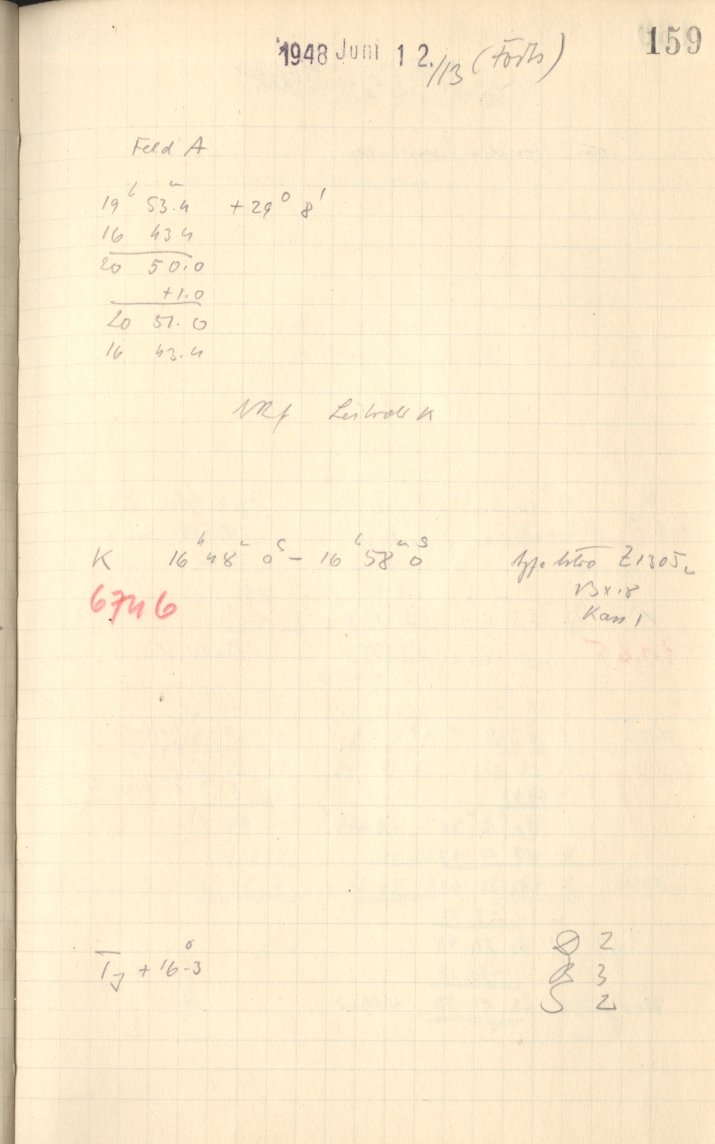 159
1948 Juni 12./13 (Forts)
Feld A
19h 53m.4 +29° 8'
16 43.4
20 50.0
+1.0
20 51.0
16 43.4
Leitrohr K
K 16h 48m 0s – 16h 58m 0s Z1305
6746 Kass 1
+16°.3
2
3
S 2